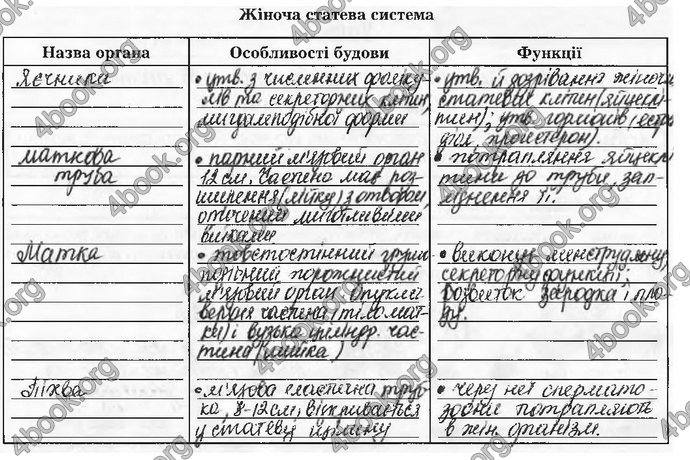 Жіноча статева система
Назва органа
Особливості будови
Функції
Яєчника
• утв. з численних фоліку-
лів та секреторних клітин,
мигдалеподібної форми
• утв. й дозрівання жіночих
статевих клітин (яйцеклі-
тин), утв. гормонів (естра-
діол, прогестерон).
маткова
труба
• парний м'язовий орган
12 см. Частина має роз-
ширення (лійку) з отвором,
оточений миготливими
війками
• потрапляння яйцеклі-
тини до труби, зап-
ліднення її.
Матка
• товстостінний груше-
подібний порожнистий
м'язовий орган. Опукла
верхня частина (тіло мат-
ки) і вузька циліндр. час-
тина (шийка)
• виконує менструальну,
секреторну функції;
розвиток зародка і пло-
ду.
Піхва
• м'язова еластична труб-
ка, 8-12 см, відкривається
у статеву щілину
• через неї спермато-
зоїди потрапляють
в жін. організм.
4book.org